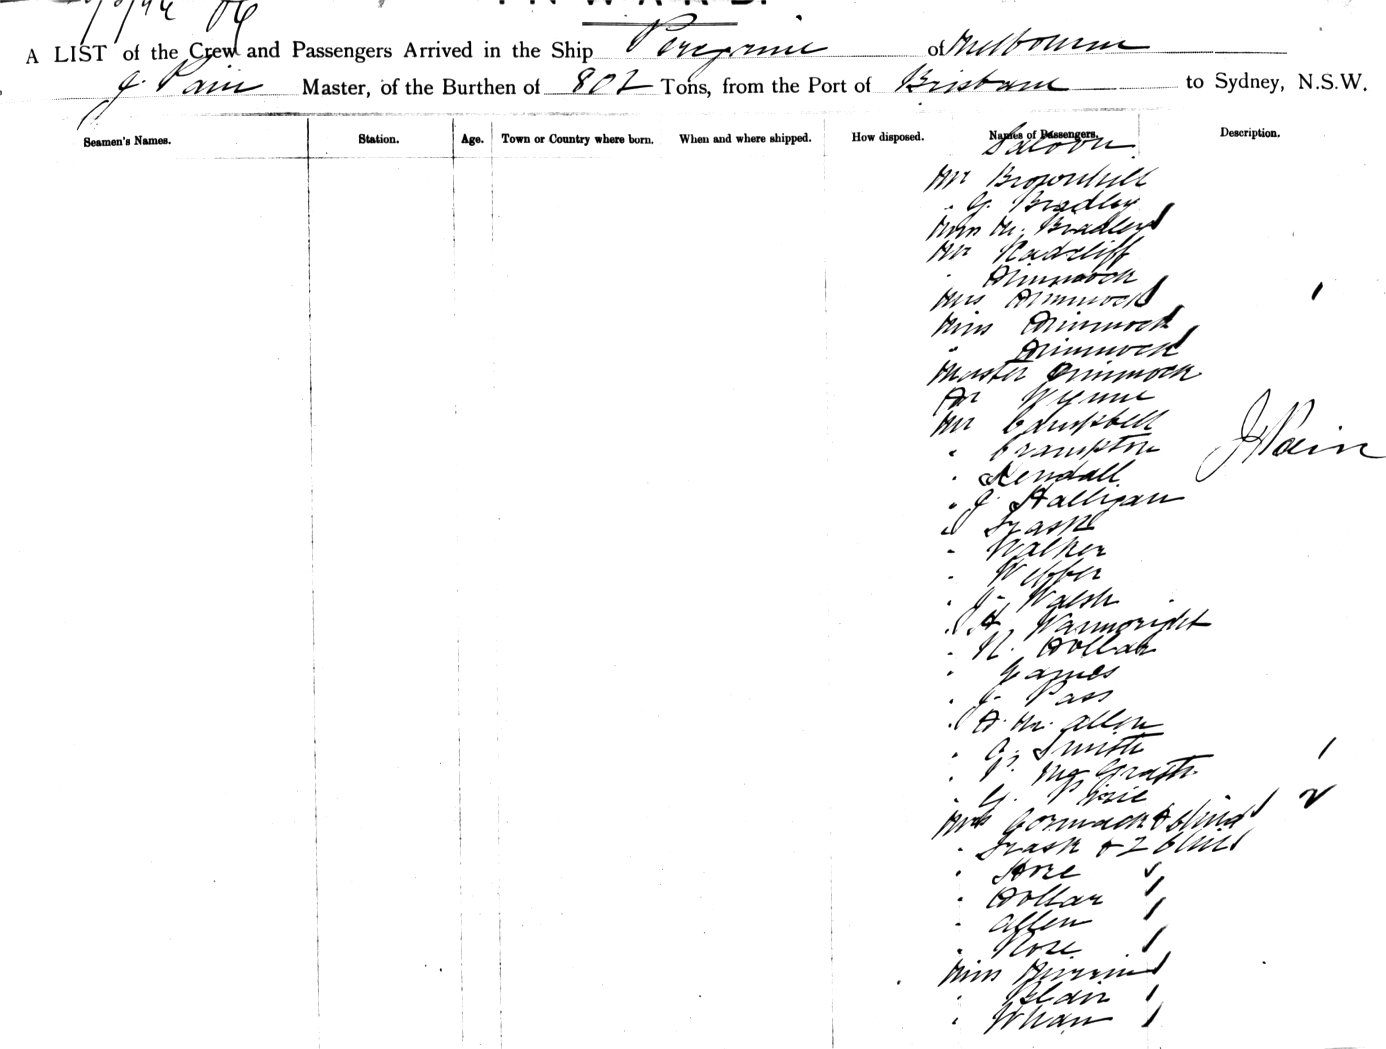 INWARD.
A LIST of the Crew and Passengers Arrived in the Ship Peregrine of Melbourne
J. Pain Master, of the Burthen of 802 Tons, from the Port of Brisbane to Sydney, N.S.W.
Seamen's Names. Station. Age. Town or Country where born. When and where shipped. How disposed. Names of Passengers. Description.
Saloon
Mr Brownhill
" G. Bradley
Miss M. Bradley
Mr Radcliff
" Dimmock
Mrs Dimmock
Miss Dimmock
" Dimmock
Master Dimmock
Dr Wynne
Mr Campbell
" Crampton
" Kendall
" J. Halligan
" Trask
" Walker
" Webber
" J. Walsh
" H Wainwright
" N. Dollar
" James
" J. Pass
" A. M. Allen
" G. Smith
" P. McGrath
" G. Pirie
Mrs Cormack & Child
" Trask & 2 Chil
" Hore
" Dollar
" Allen
" Rose
Miss
" Blair
" Whan
J Pain